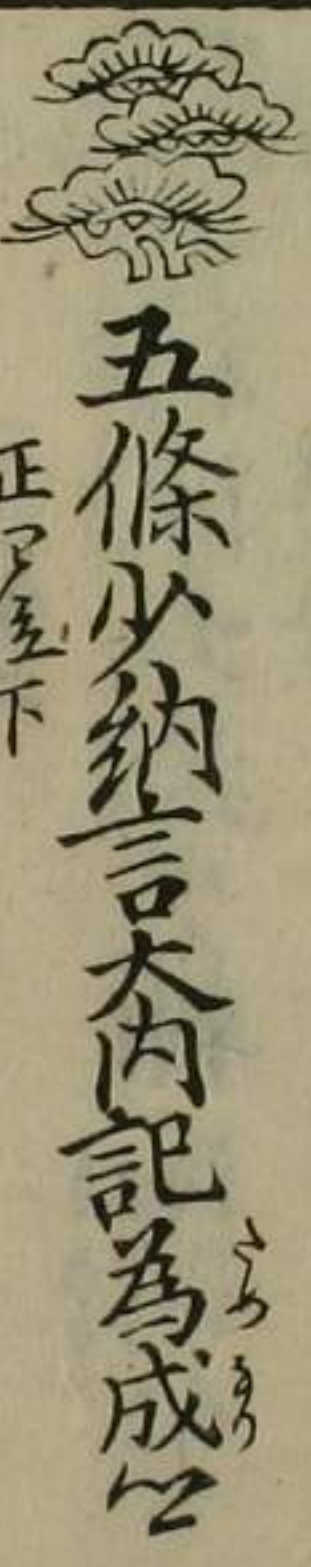 五條少納言大内記為成公
ためなり
正四位下